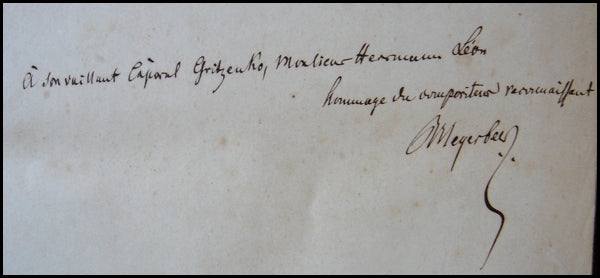 À son vaillant Caporal Gritzenko, Monsieur Herrmann Léon
hommage du compositeur reconnaissant
Meyerbeer